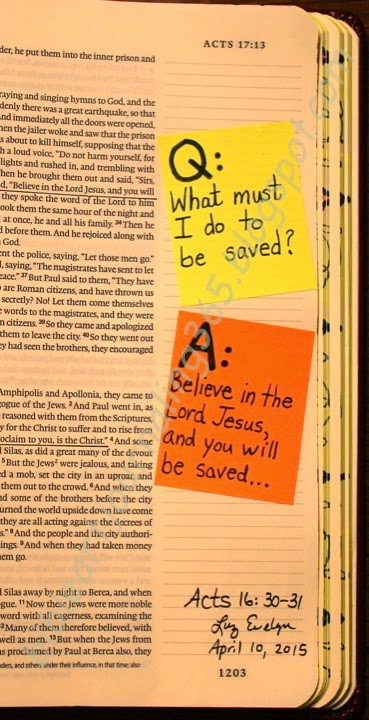 ACTS 17:13
der, he put them into the inner prison and
raying and singing hymns to God, and the
denly there was a great earthquake, so that
nd immediately all the doors were opened,
hen the jailer woke and saw that the prison
s about to kill himself, supposing that the
h a loud voice, "Do not harm yourself, for
lights and rushed in, and trembling with
hen he brought them out and said, "Sirs,
d, "Believe in the Lord Jesus, and you will
they spoke the word of the Lord to him
ook them the same hour of the night and
at once, he and all his family. 34 Then he
before them. And he rejoiced along with
God.
ent the police, saying, "Let those men go."
, saying, "The magistrates have sent to let
eace." 37 But Paul said to them, "They have
are Roman citizens, and have thrown us
secretly? No! Let them come themselves
words to the magistrates, and they were
n citizens. 39 So they came and apologized
them to leave the city. 40 So they went out
y had seen the brothers, they encouraged
Amphipolis and Apollonia, they came to
ogue of the Jews. 2 And Paul went in, as
reasoned with them from the Scriptures,
y for the Christ to suffer and to rise from
oclaim to you, is the Christ." 4 And some
Silas, as did a great many of the devout
5 But the Jews 2 were jealous, and taking
d a mob, set the city in an uproar, and
them out to the crowd. 6 And when they
nd some of the brothers before the city
urned the world upside down have come
they are all acting against the decrees of
s." 8 And the people and the city authori-
ings. 9 And when they had taken money
em go.
Silas away by night to Berea, and when
gue. 11 Now these Jews were more noble
word with all eagerness, examining the
12 Many of them therefore believed, with
well as men. 13 But when the Jews from
s proclaimed by Paul at Berea also, they
ders, and others under their influence, in that time; also
Q:
What must
I do to
be saved?
A:
Believe in the
Lord Jesus,
and you will
be saved...
Acts 16:30-31
Luz Evelyn
April 10, 2015
1203
365.blogspot.com